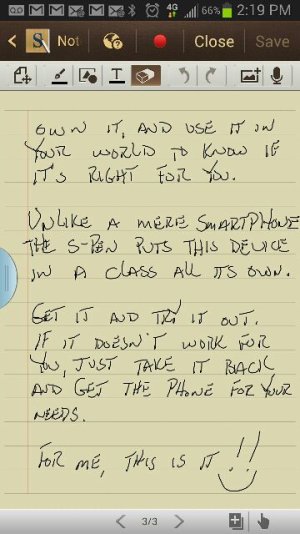 4G 66% 2:19 PM
S Not Close Save
T
OWN IT, AND USE IT IN
YOUR WORLD TO KNOW IF
IT'S RIGHT FOR YOU.
UNLIKE A MERE SMARTPHONE
THE S-PEN PUTS THIS DEVICE
IN A CLASS ALL ITS OWN.
GET IT AND TRY IT OUT.
IF IT DOESN'T WORK FOR
YOU, JUST TAKE IT BACK
AND GET THE PHONE FOR YOUR
NEEDS.
FOR ME, THIS IS IT!!
< 3/3 >